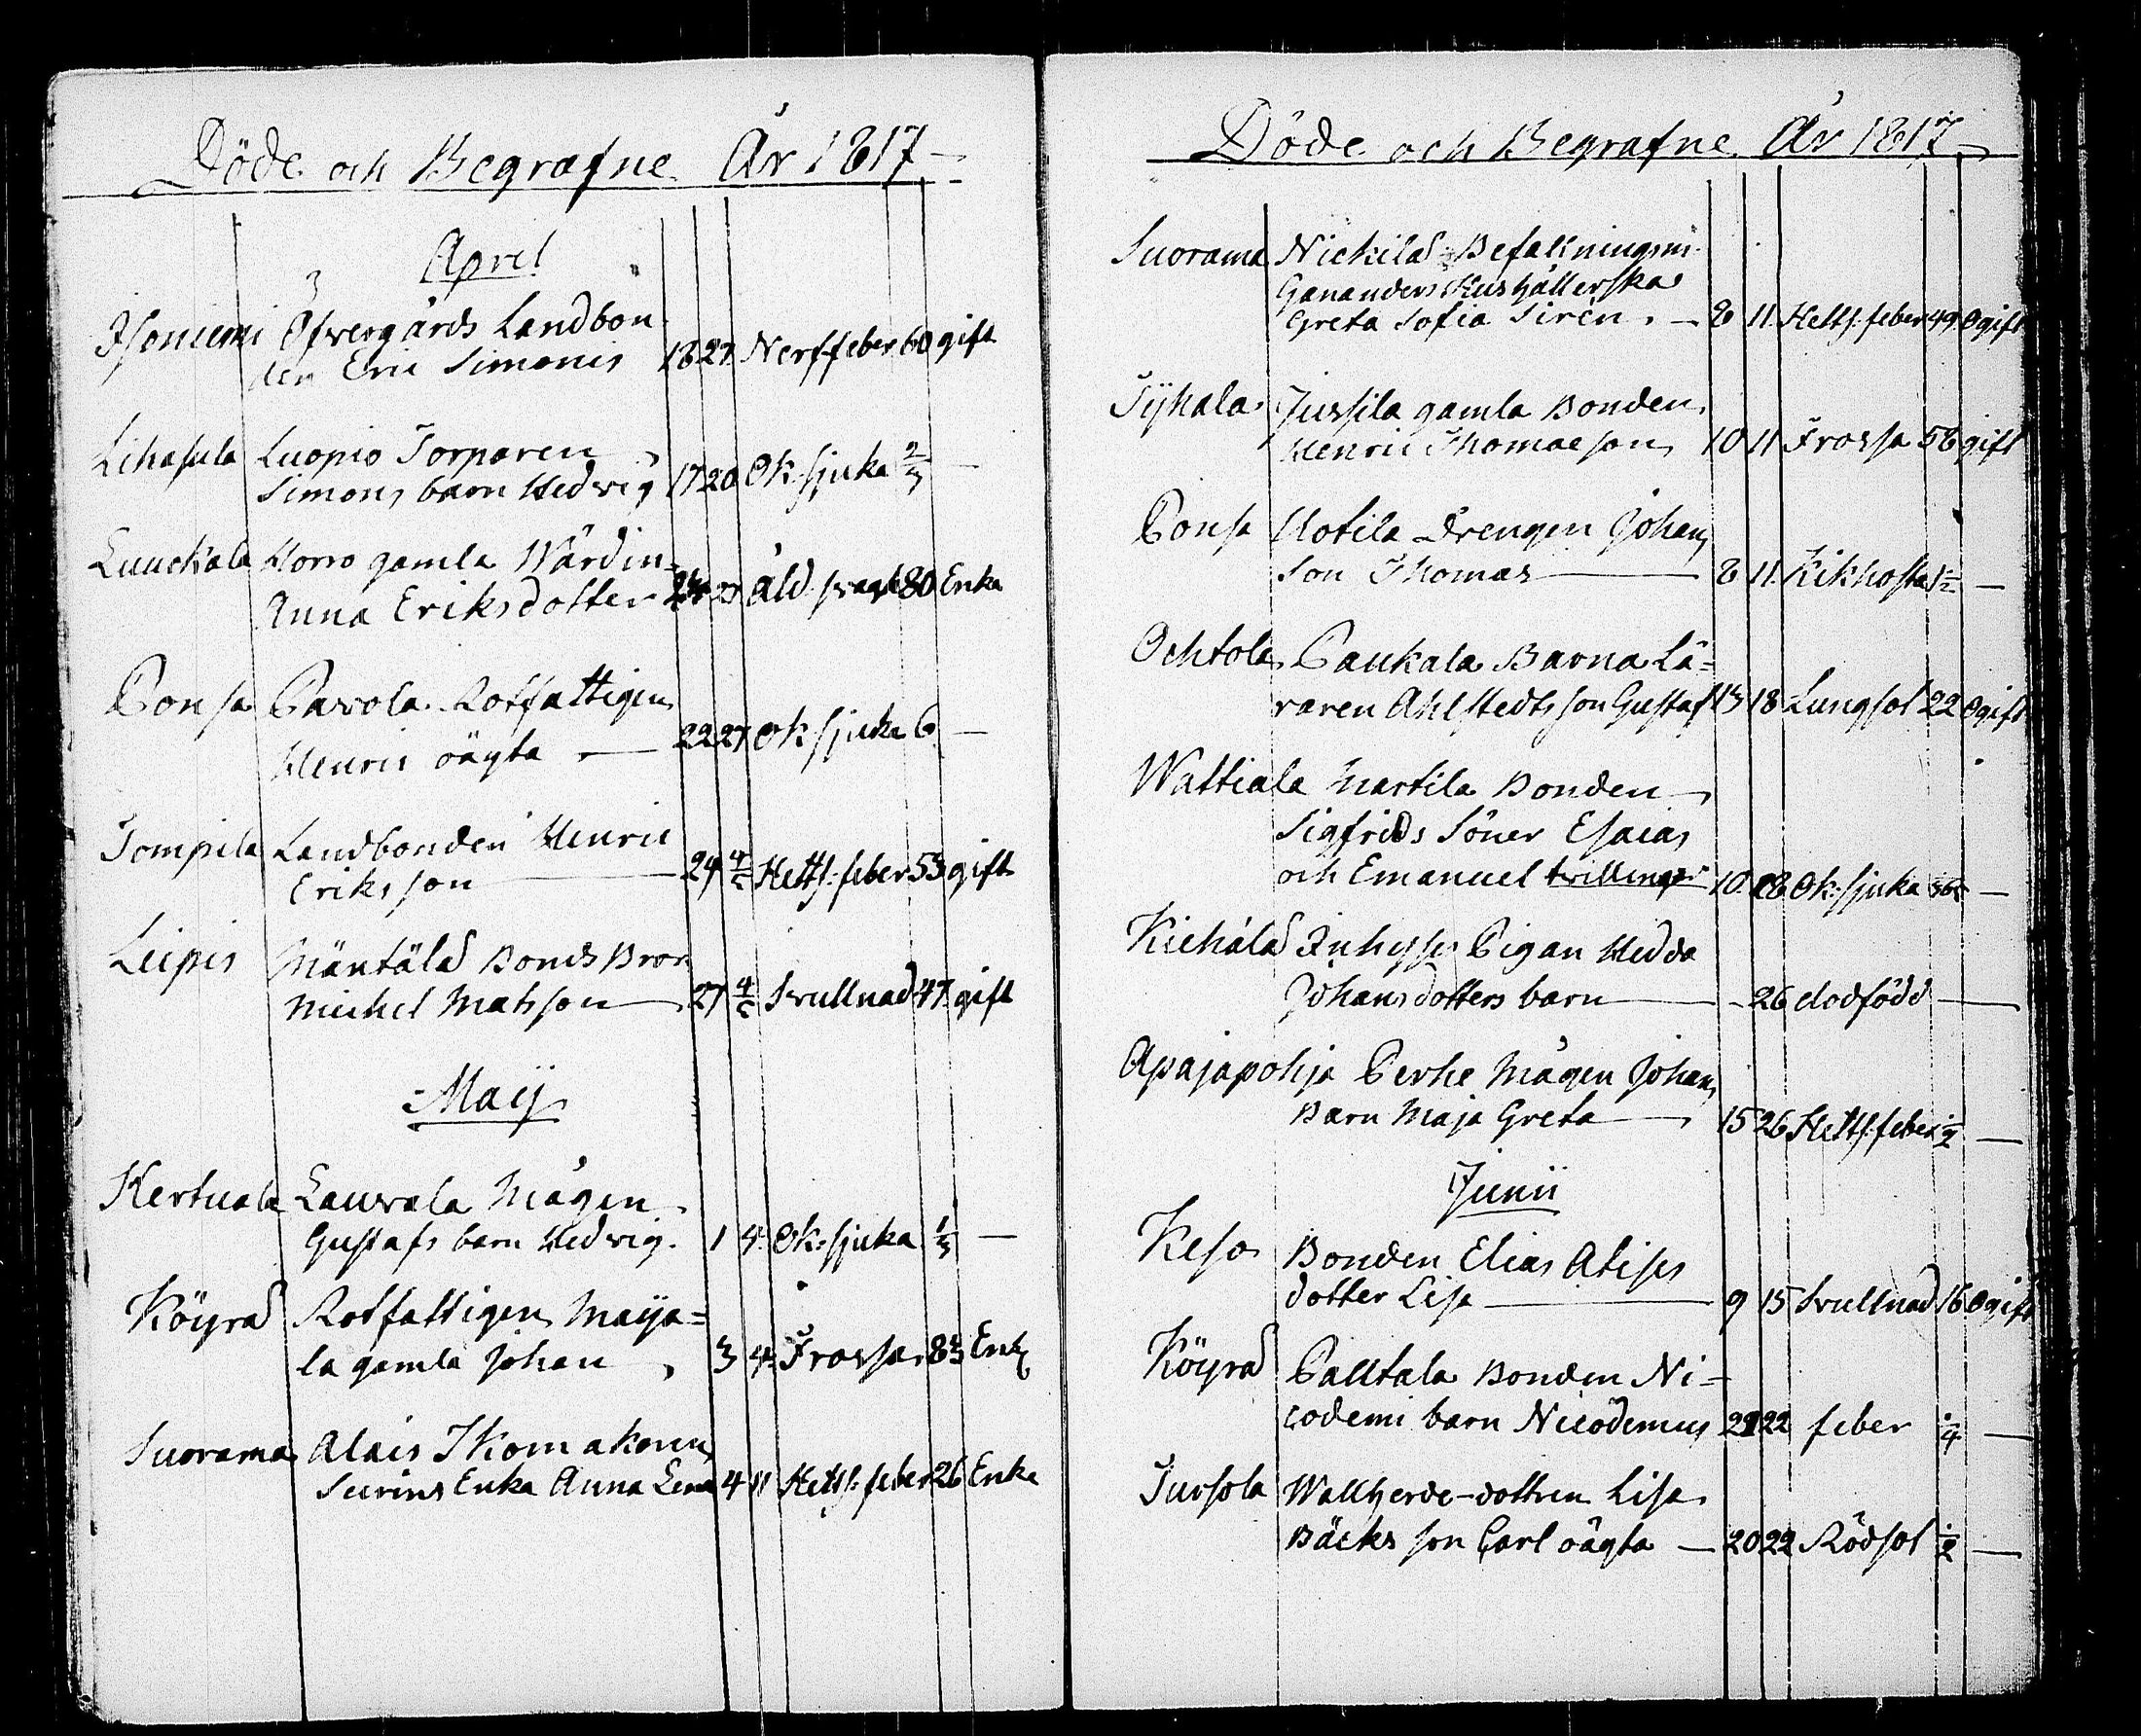 Döde och Begrafne År 1817
April
Isoniemi Öfvergårds Landbon
den Eric Simonis 18 27 Nerffeber 60 gift
Lihasula Luopio Torparen
Simons barn Hedvig 17 20 Ok. sjuka 2/3 —
Luuckala Horro gamla Wärdin-
Anna Eriksdotter 24 27 Åld. svagh 80 Enka
Ponsa Pavola Rotfattigen
Henris oägta — 22 27 Ok. sjuka 6 —
Tompila Landbonden Henric
Eriksson — 24 4/5 Hetts. feber 53 gift
Leipis Mäntälä Bonds Bror
Michel Matsson — 27 4/5 Svullnad 47 gift
Maij
Kertuala Laurala Mågen
Gustafs barn Hedvig. 1 4 Ok. sjuka 1/3 —
Köyrä Rotfattigen Maija=
la gamla Johan 3 4 Frossa 83 Enk
Suorama Alais Skomakaren
Seirins Enka Anna Lena 4 11 Hetts. feber 26 Enka
Döde och Begrafne År 1817
Suorama Nickilä Befallningsm.
Gananders Hushållerska
Greta Sofia Siren. — 8 11 Hetts. feber 49 Ogift
Tÿhala Jussila gamla Bonden
Henric Thomaeson 10 11 Frossa 58 gift
Ponsa Uotila Drengen Johans
Son Thomas — 8 11 Kikhosta 1/2 —
Ochtola Paukala Barna Lä=
raren Ahlstedts son Gustaf 13 18 Lungsot 22 Ogift
Wattiala Martila Bonden
Sigfrids Söner Esaias
och Emanuel trillingar 10 18 Ok. sjuka —
Kiehälä Inhyses Pigan Hedda
Johansdotters barn — 26 dodfödd —
Apajapohja Perhe Mågen Johans
Barn Maja Greta — 15 26 Hetts. feber 1/2 —
Junii
Keso Bonden Elias Abises
dotter Lisa — 9 15 Svullnad 16 Ogift
Köyrä Palltala Bonden Ni=
codemi barn Nicodemus 21 22 feber 1/4 —
Tursola Wallherde-dottren Lisa
Bäcks son Carl oägta — 20 22 Rödsot 1/2 —